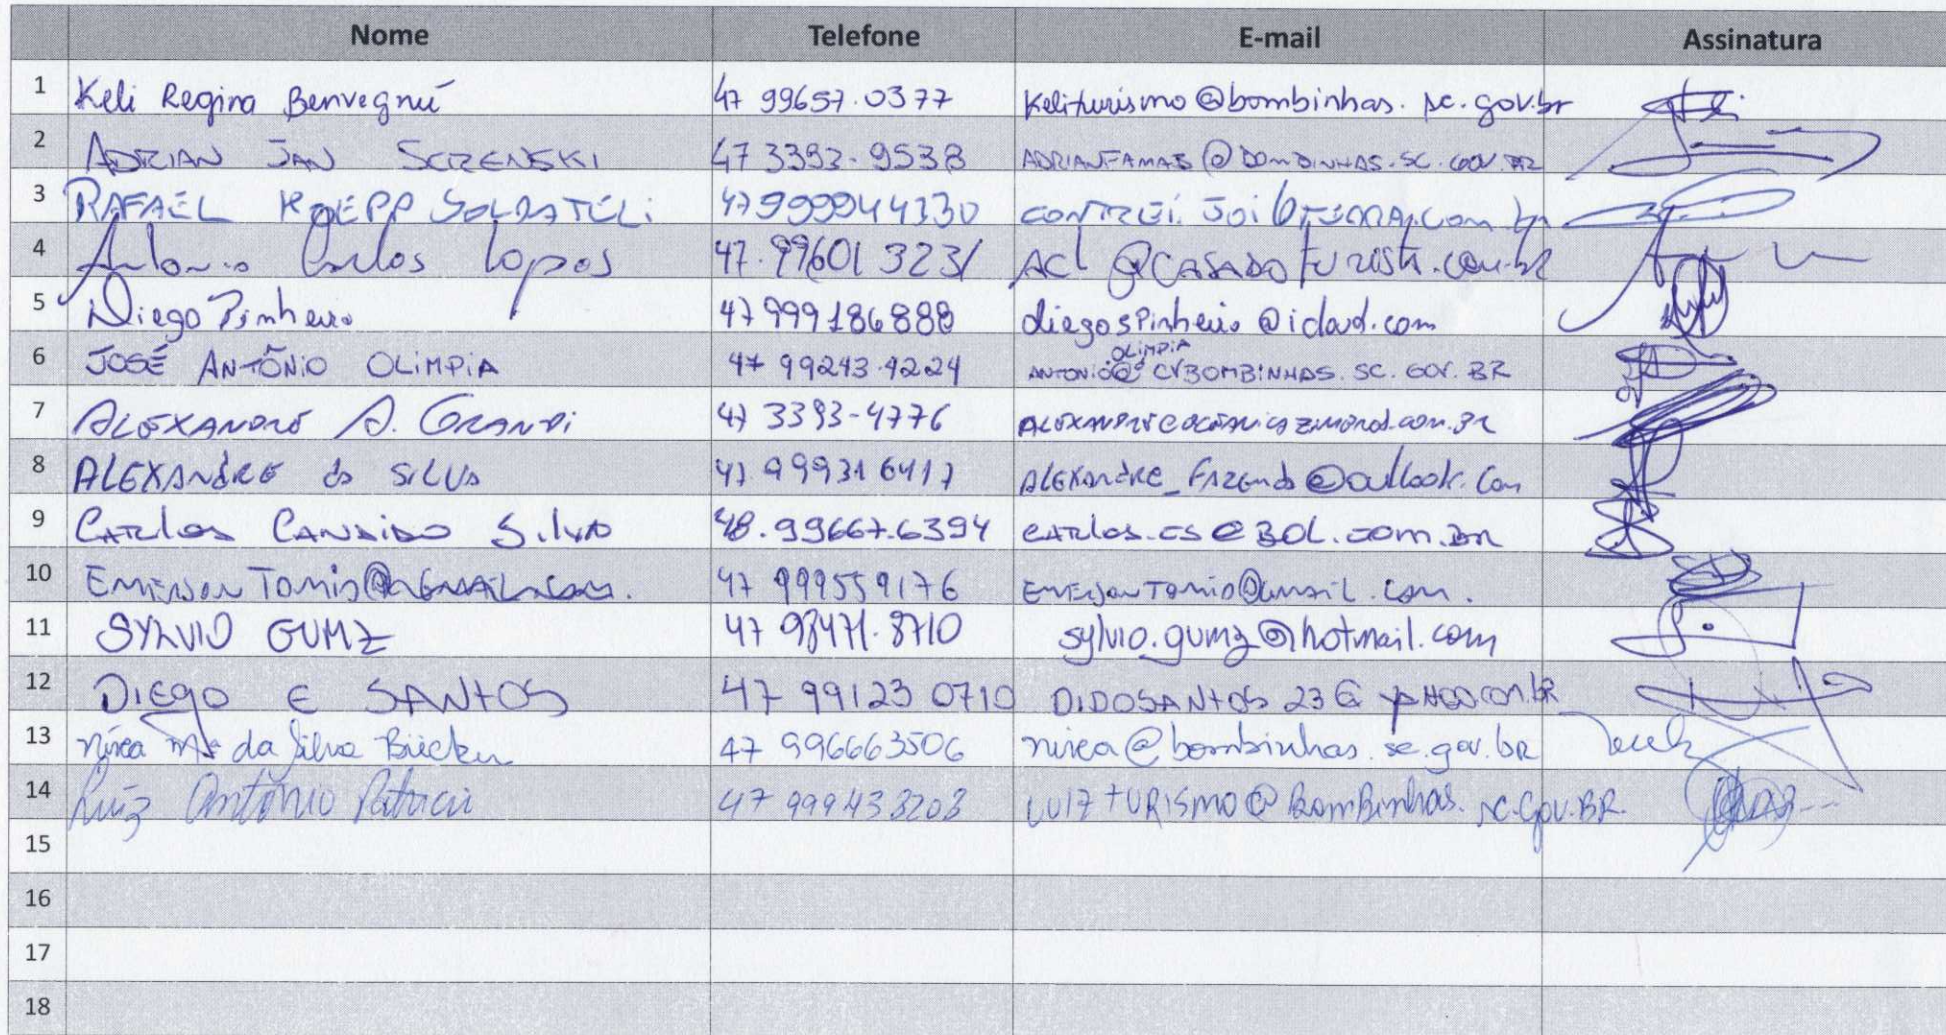 Nome Telefone E-mail Assinatura
1 Keli Regina Benvegnú 47 99657.0377 Keliturismo@bombinhas.sc.gov.br
2 ADRIAN JAN SCZENSKI 47 3393-9538 ADRIANFAMAB@BOMBINHAS.SC.GOV.BR
3 RAFAEL KOEPP SOLDATELI 47999944330
4 Antonio Carlos Lopes 47.99601 3231 ACL@CASADOTURISTA.COM.BR
5 Diego Pinheiro 47 999186888 diegospinheiro@icloud.com
6 JOSÉ ANTÔNIO OLIMPIA 47 99243.4224 ANTONIO OLIMPIA@CVBOMBINHAS.SC.GOV.BR
7 ALEXANDRE A. GRANDI 47 3393-4776
8 ALEXANDRE da SILVA 47.999316417 ALEXANDRE_FAZENDA@outlook.com
9 CARLOS CANDIDO SILVA 48.99667.6394 CARLOS.CS@BOL.COM.BR
10 EMERSON TOMIO@GMAIL.COM. 47 999559176 EMERSONTOMIO@GMAIL.COM.
11 SYLVIO GUMZ 47 98471.8710 sylvio.gumz@hotmail.com
12 DIEGO E SANTOS 47 99123 0710 DIDOSANTOS 23@YAHOO.COM.BR
13 nivea Mª da Silva Bücker 47 996663506 nivea@bombinhas.sc.gov.br
14 Luiz Antônio Patricio 47 999433203 LUIZTURISMO@BomBinhas.sc.Gov.BR.
15
16
17
18